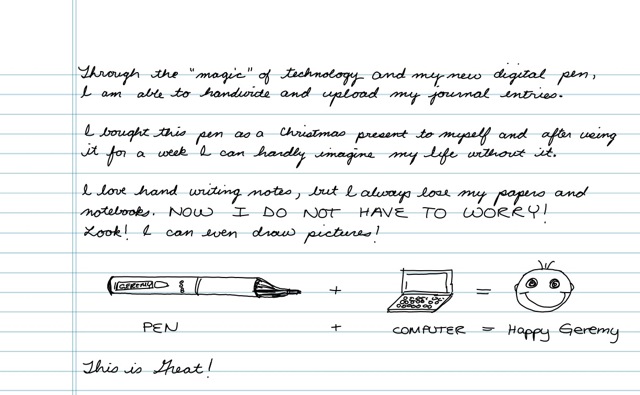 Through the "magic" of technology and my new digital pen,
I am able to handwide and upload my journal entries.
I bought this pen as a Christmas present to myself and after using
it for a week I can hardly imagine my life without it.
I love hand writing notes, but I always lose my papers and
notebooks. NOW I DO NOT HAVE TO WORRY!
Look! I can even draw pictures!
GEREMY + =
PEN + COMPUTER = Happy Geremy
This is Great!